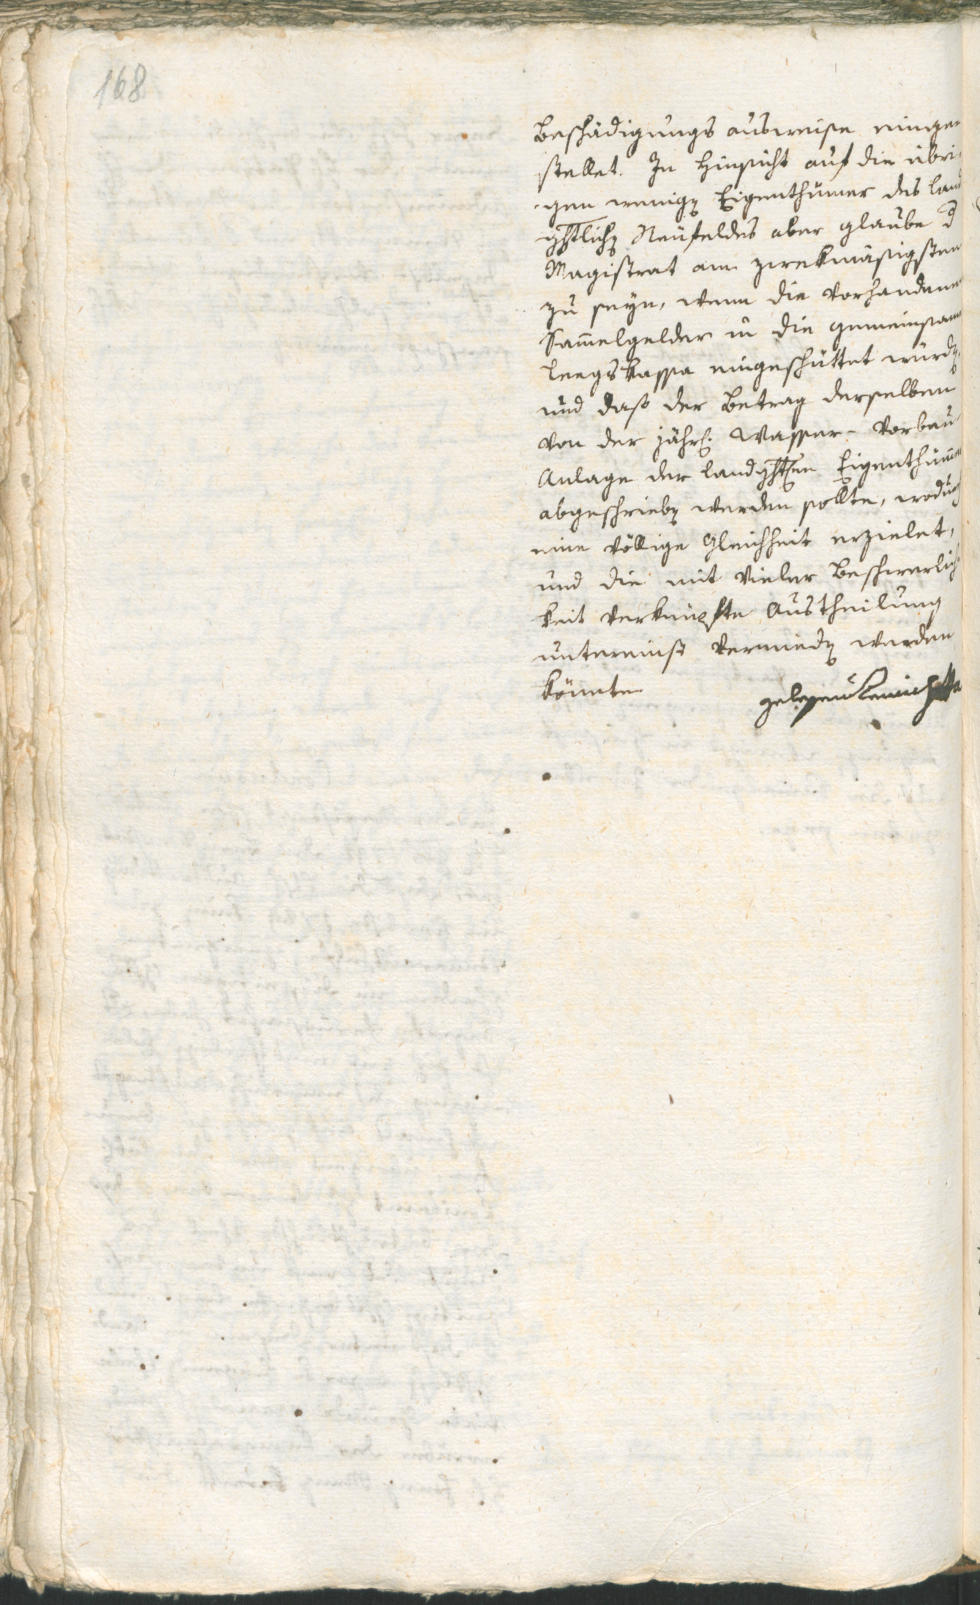 168
Beschädigungs ausweise einge-
stellet. In Hinsicht auf die übri-
gen wenigen Eigenthümer des land
ghtlichen Neufeldes aber glaube d
Magistrat am zwekmäsigsten
zu seyn, wenn die vorhandenen
Sammelgelder in die gemeinsame
Leegskassa eingeschüttet würden,
und dass der Betrag derselben
von der jährl: Wasser-Vorbau-
Anlage der landghtlen Eigenthümer
abgeschrieben werden sollte, wodurch
eine völlige Gleichheit erzielet,
und die mit vieler Beschwerlich
keit verknüpfte Austheilung
untereinst vermieden werden
könnte.